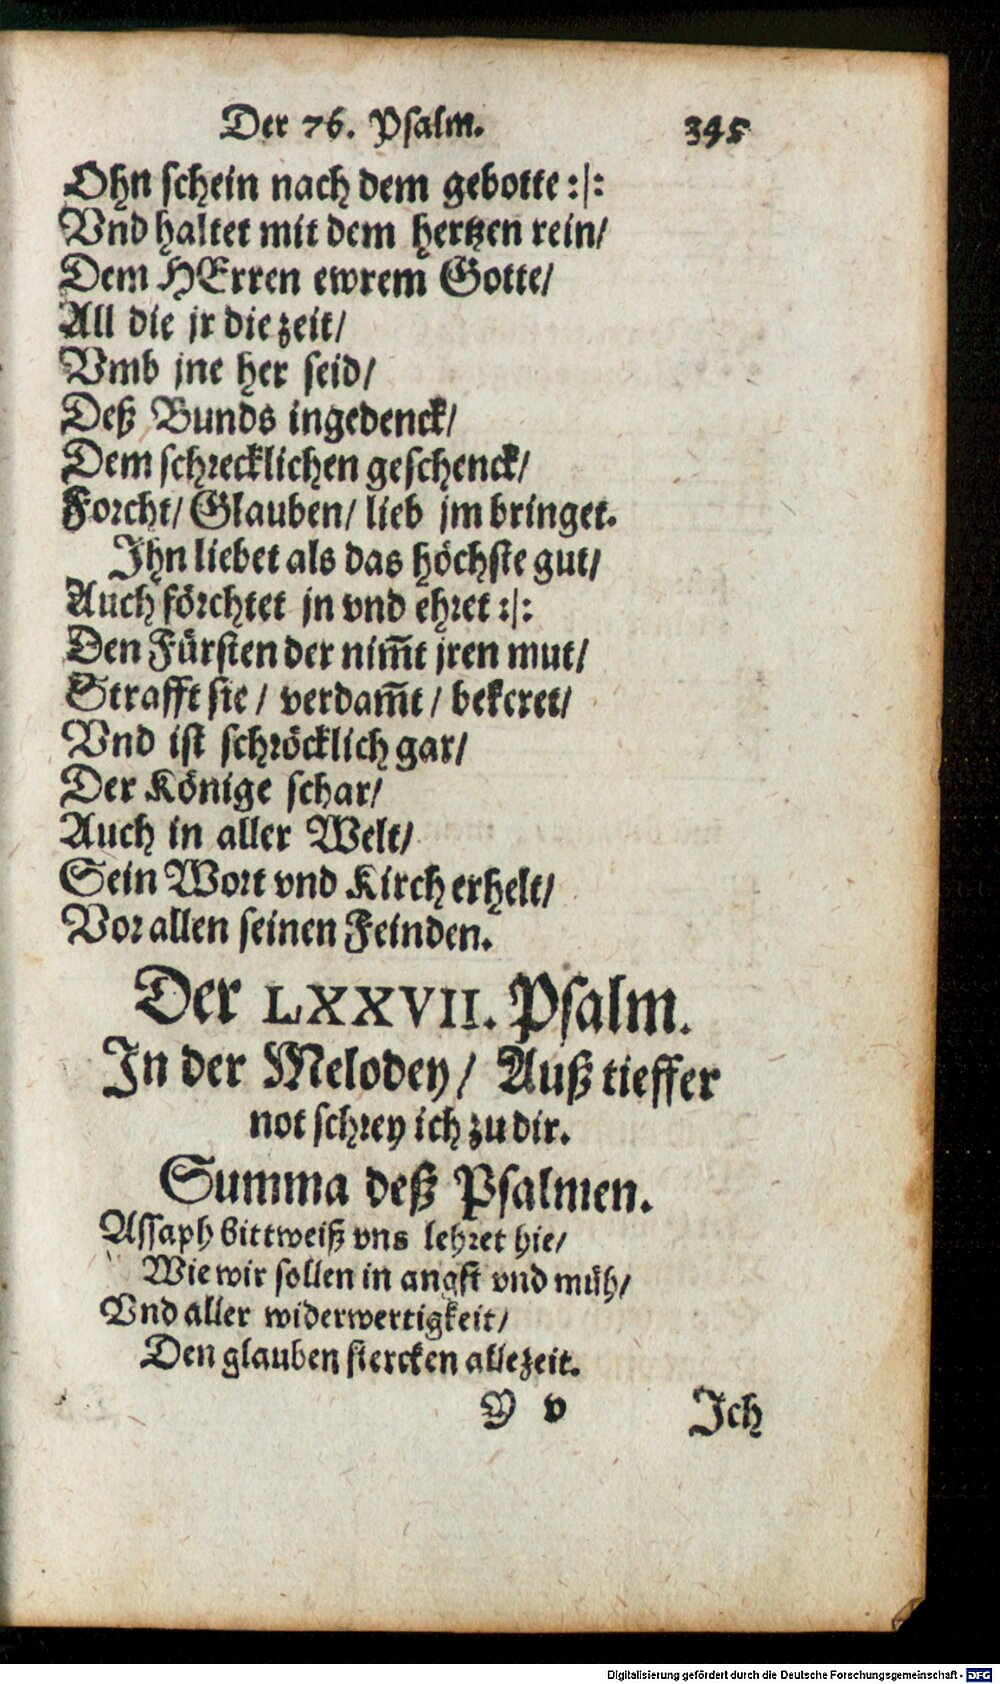 Der 76. Psalm. 345
Ohn schein nach dem gebotte :|:
Vnd haltet mit dem hertzen rein/
Dem HErren ewrem Gotte/
All die jr die zeit/
Vmb jne her seid/
Deß Bunds ingedenck/
Dem schrecklichen geschenck/
Forcht/ Glauben/ lieb jm bringet.
Ihn liebet als das höchste gut/
Auch förchtet jn vnd ehret :|:
Den Fürsten der nim̃t jren mut/
Strafft sie / verdam̃t / bekeret/
Vnd ist schröcklich gar/
Der Könige schar/
Auch in aller Welt/
Sein Wort vnd Kirch erhelt/
Vor allen seinen Feinden.
Der LXXVII. Psalm.
In der Melodey/ Auß tieffer
not schrey ich zu dir.
Summa deß Psalmen.
Assaph bittweiß vns lehret hie/
Wie wir sollen in angst vnd müh/
Vnd aller widerwertigkeit/
Den glauben stercken allezeit.
Y v Ich
Digitalisierung gefördert durch die Deutsche Forschungsgemeinschaft - DFG